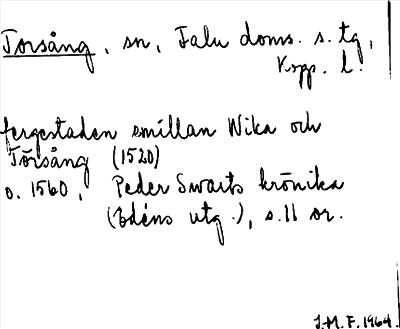 Torsång, sn, Falu doms. s. tg,
Kopp. l.
fergestaden emillan Wika och
Törsång (1520)
o. 1560, Peder Swarts krönika
(Edéns utg.), s. 11 or.
J.M.F. 1964.